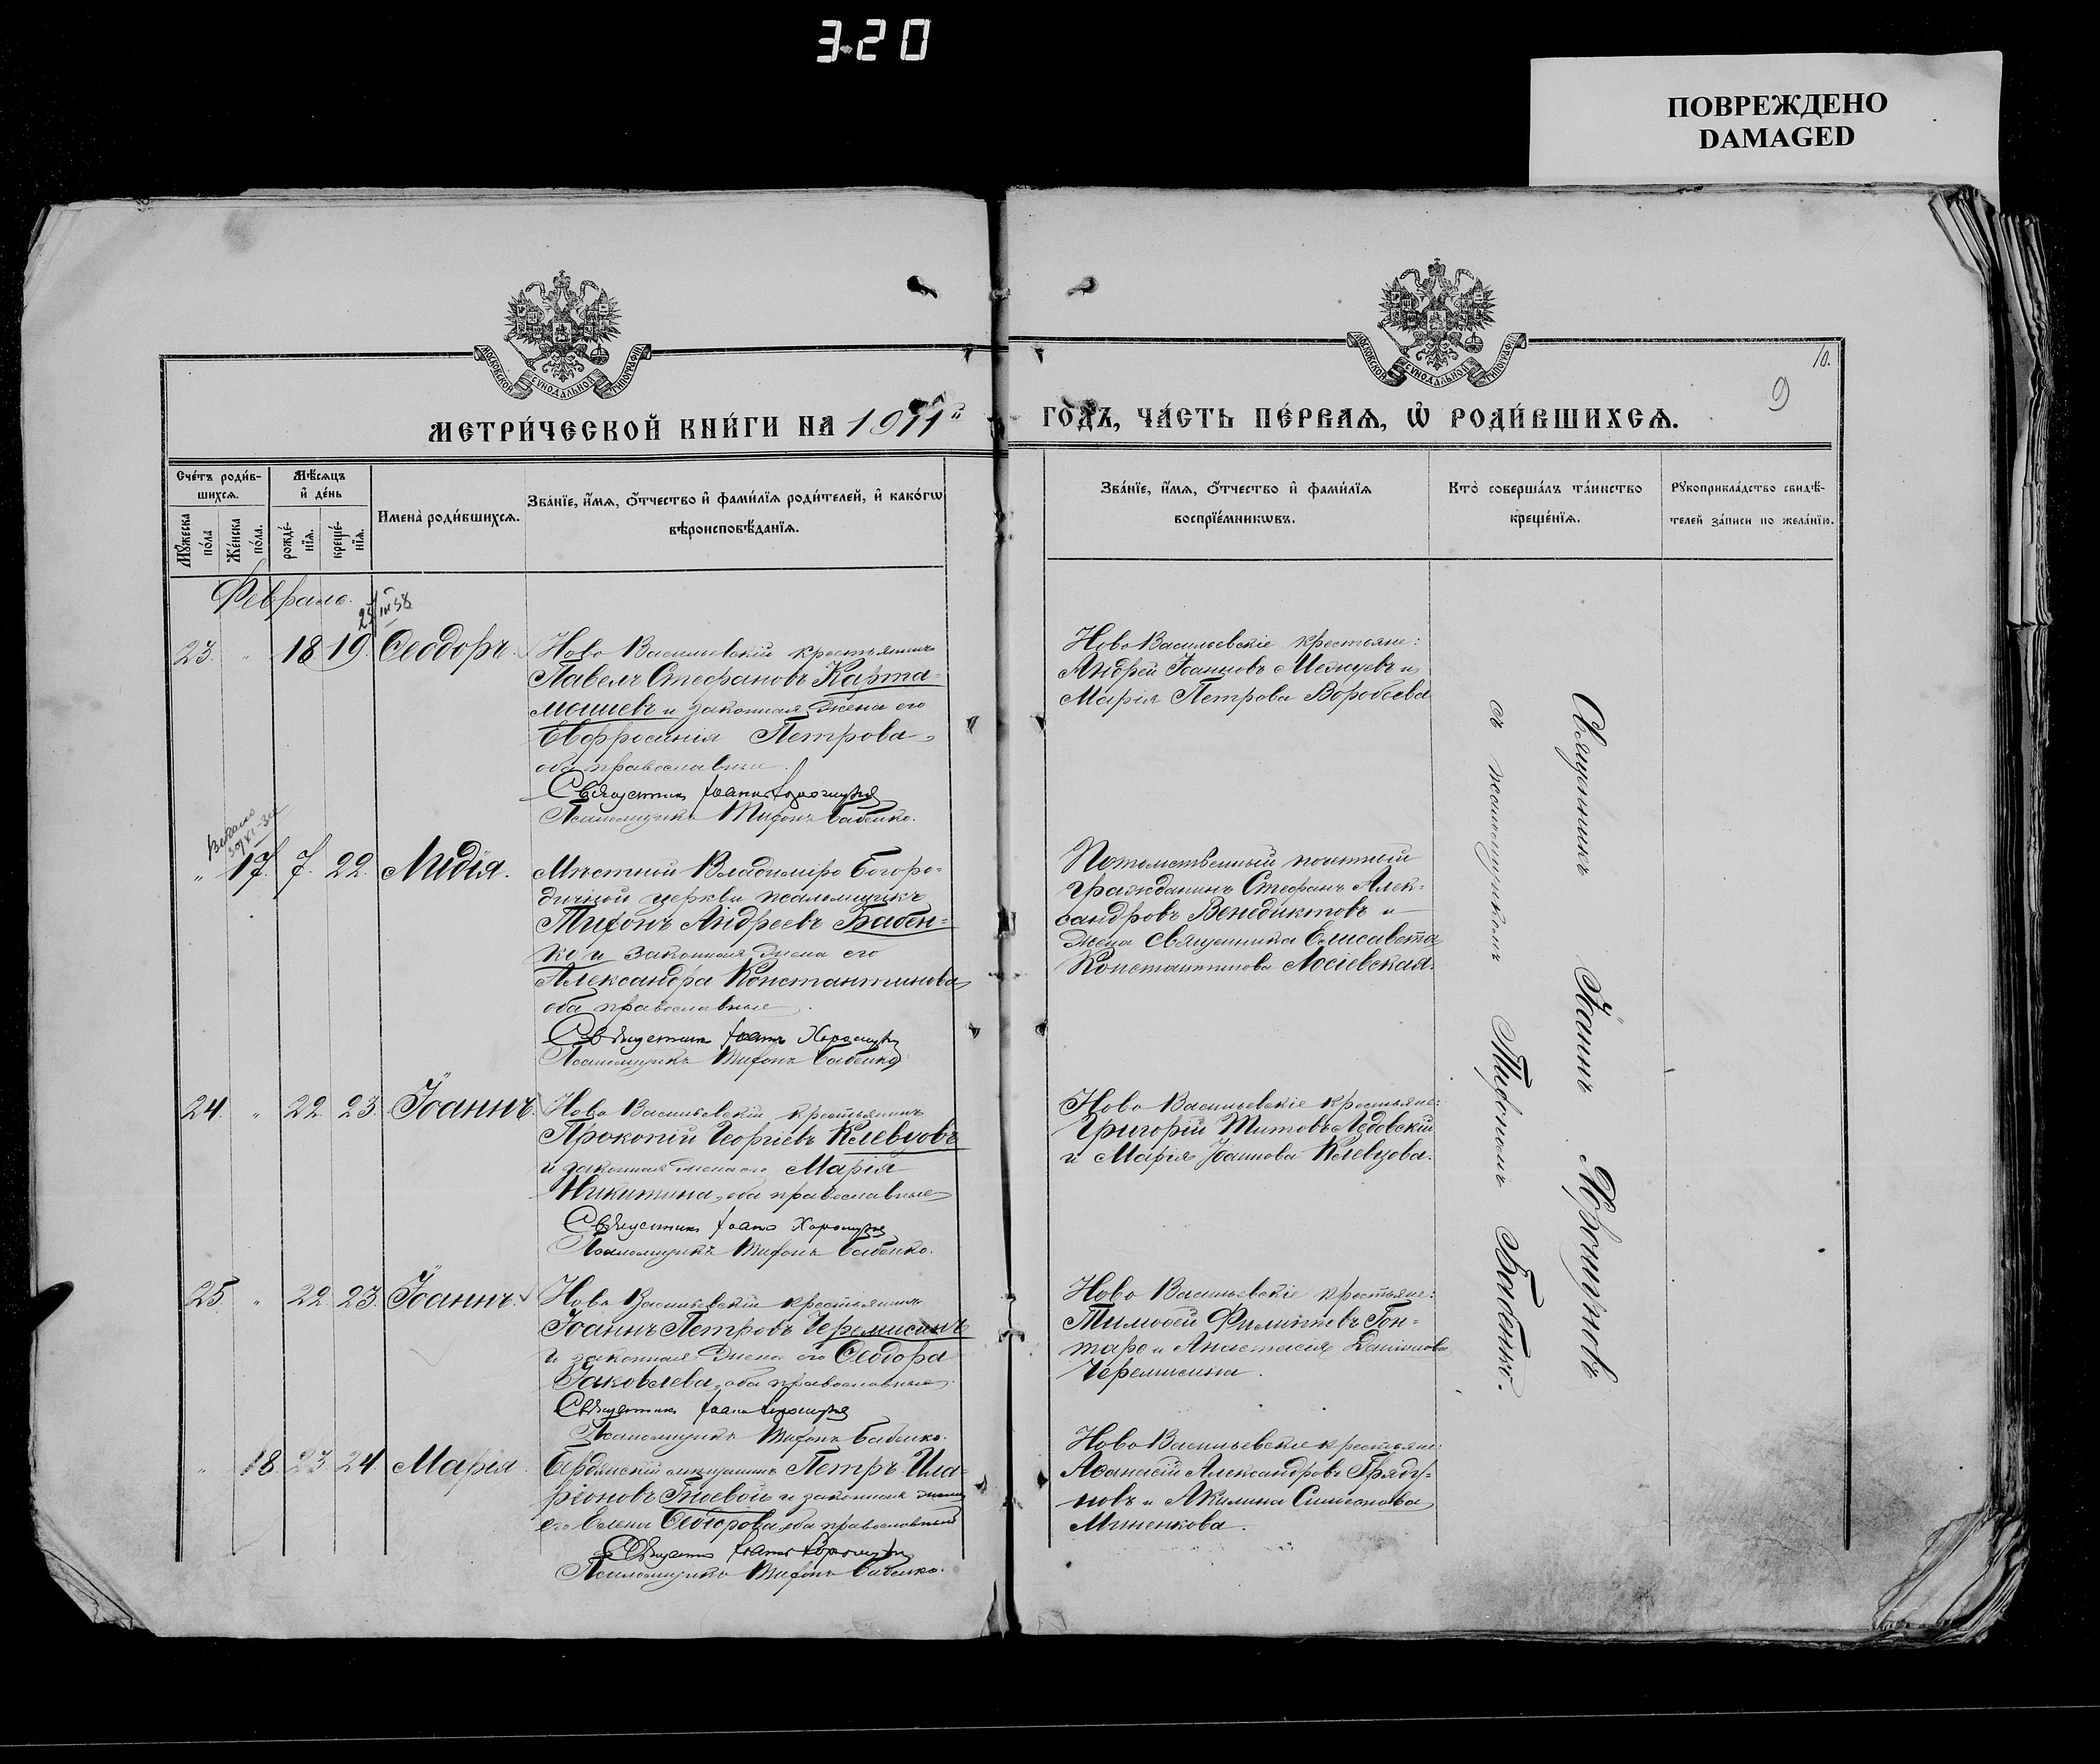 3-20
ПОВРЕЖДЕНО
DAMAGED
МОСКОВСКОЙ СУНОДАЛЬНОЙ ТИПОГРАФІИ
МОСКОВСКОЙ СУНОДАЛЬНОЙ ТИПОГРАФІИ
10.
9
МЕТРИ́ЧЕСКОЙ КНИ́ГИ НА 1911й
ГОДЪ, ЧА́СТЬ ПЕ́РВАѦ, Ѡ҆ РОДИ́ВШИХСѦ.
Сче́тъ роди́в-
шихсѧ.
Мꙋ́жеска
по́ла
Же́нска
по́ла.
Мѣ́сѧцъ
и҆ де́нь
рожде́-
нїѧ.
креще́-
нїѧ.
Имена̀ роди́вшихсѧ.
Зва́нїе, и҆́мѧ, ѻ҆́тчество и҆ фами́лїѧ роди́телей, и҆ како́гѡ
вѣроисповѣ́данїѧ.
Зва́нїе, и҆́мѧ, ѻ҆́тчество и҆ фами́лїѧ
воспрїе́мникѡвъ.
Кто̀ соверша́лъ та́инство
креще́нїѧ.
Рꙋкоприкла́дство свидѣ́-
телей за́писи по жела́нїю.
Февраль.
23. " 18. 19. Ѳеодоръ.
Ново Васильевскій крестьянинъ
Павелъ Стефановъ Карта-
мышевъ и законная жена его
Евфросинія Петрова,
оба православные.
Священникъ Іоаннъ Хорошуновъ
Псаломщикъ Тифонъ Бабенко.
Ново Васильевскіе крестьяне:
Андрей Іоанновъ Межуевъ и
Марія Петрова Воробьева
" 17. 7. 22. Лидія.
Мѣстный Владиміро Богоро-
дичной церкви псаломщикъ
Тифонъ Андреевъ Бабен-
ко и законная жена его
Александра Константинова
оба православные.
Священникъ Іоаннъ Хорошуновъ
Псаломщикъ Тифонъ Бабенко
Потомственный почетный
гражданинъ Стефанъ Алек-
сандровъ Венедиктовъ и
жена священника Елисавета
Константинова Лосіевская.
24. " 22. 23. Іоаннъ.
Ново Васильевскій крестьянинъ
Прокопій Георгіевъ Клевцовъ
и законная жена его Марія
Никитина, оба православные
Священникъ Іоаннъ Хорошуновъ
Псаломщикъ Тифонъ Бабенко.
Ново Васильевскіе крестьяне:
Григорій Титовъ Ледовскій
и Марія Іоаннова Клевцова.
25. " 22. 23. Іоаннъ.
Ново Васильевскій крестьянинъ
Іоаннъ Петровъ Черемисинъ
и законная жена его Ѳеодора
Іаковлева, оба православные.
Священникъ Іоаннъ Хорошуновъ
Псаломщикъ Тифонъ Бабенко.
Ново Васильевскіе крестьяне:
Тимоѳей Филипповъ Гон-
таръ и Анастасія Даніилова
Черемисина.
" 18. 23. 24. Марія
Бердянскій мѣщанинъ Петръ Ила-
ріоновъ Гноевой и законная жена
его Елена Ѳеодорова оба православные
Священникъ Іоаннъ Хорошуновъ
Псаломщикъ Тифонъ Бабенко.
Ново Васильевскіе крестьяне:
Аѳанасій Александровъ Гряду-
новъ и Акилина Симеонова
Миненкова.
Священникъ Іоаннъ Хорошуновъ
съ псаломщикомъ Тифономъ Бабенко.